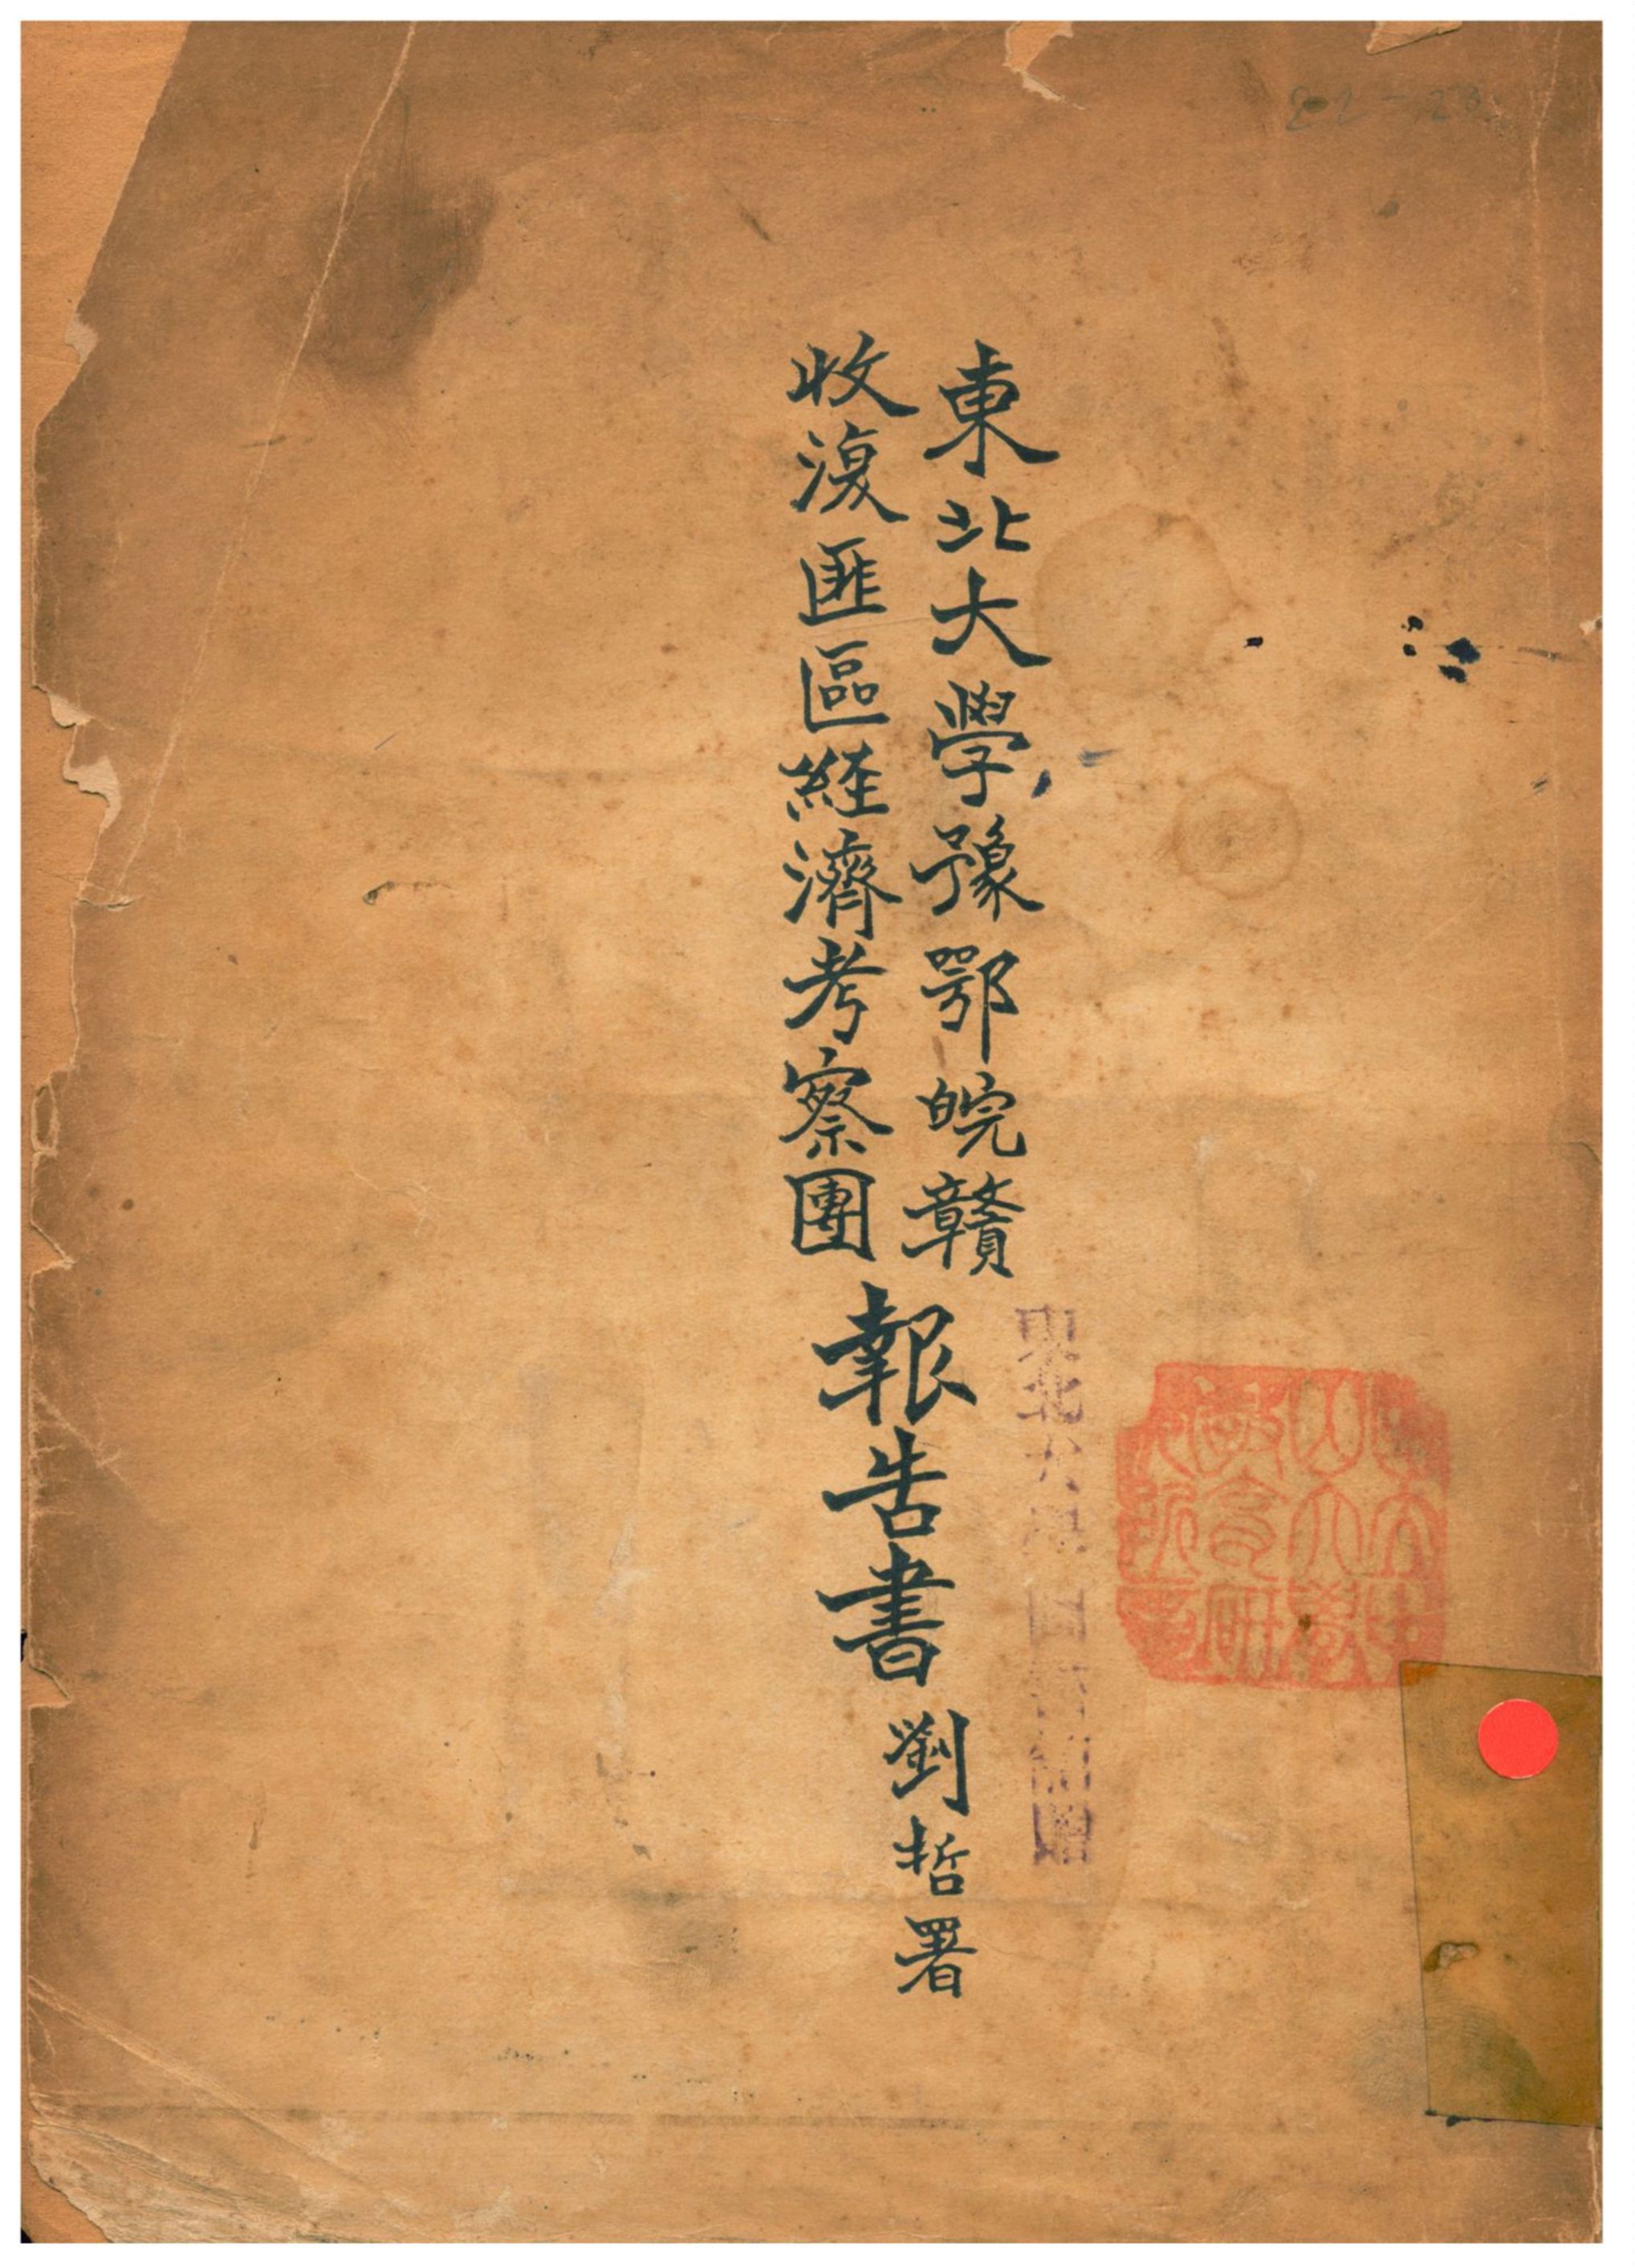 東北大學豫鄂皖贛
收復匪區經濟考察團
報告書
劉哲署